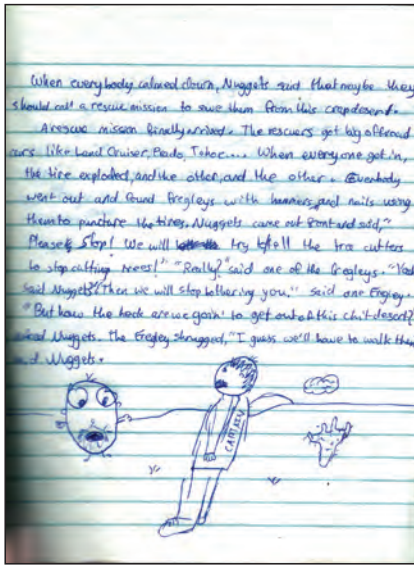 When everybody calmed down, Nuggets said that maybe they
should call a rescue mission to save them from this crap desert.
A rescue mission finally arrived. The rescuers got big offroad
cars like Land Cruiser, Prado, Tahoe.... When everyone got in,
the tire exploded, and the other, and the other. Everybody
went out and found Fregleys with hammers and nails using
them to puncture the tires. Nuggets came out front and said,"
Please Stop! We will try to tell the tree cutters
to stop cutting trees!" "Really?" said one of the Fregleys. "Yes"
said Nuggets "Then we will stop bothering you." said one Fregley.
"But how the heck are we goin' to get out of this desert?
Nuggets. The Fregley shrugged, "I guess we'll have to walk then
Nuggets.
CAPTAIN